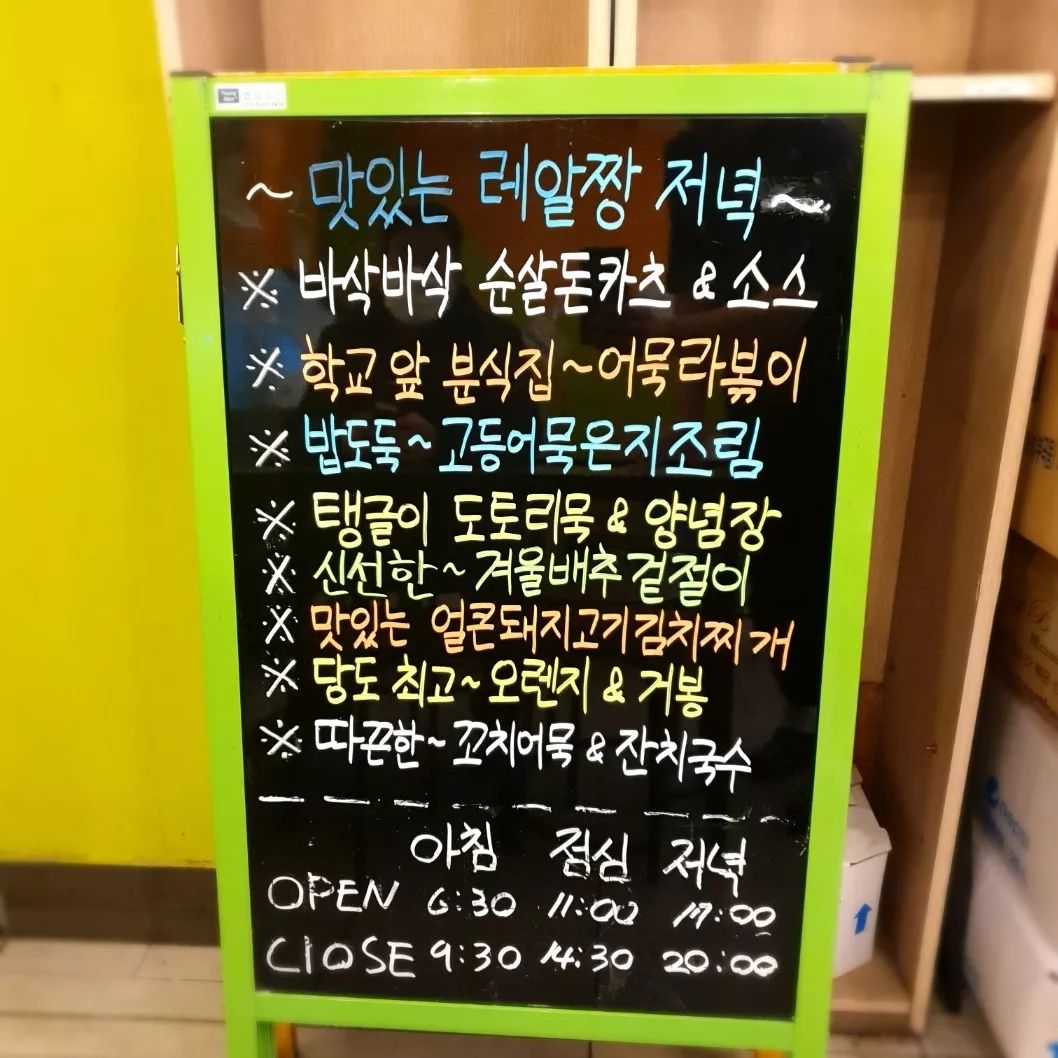 ~ 맛있는 레알짱 저녁 ~
※ 바삭바삭 순살돈카츠 & 소스
※ 학교 앞 분식집~어묵라볶이
※ 밥도둑~고등어묵은지조림
※ 탱글이 도토리묵 & 양념장
※ 신선한~겨울배추겉절이
※ 맛있는 얼큰돼지고기김치찌개
※ 당도 최고~오렌지 & 거봉
※ 따끈한~꼬치어묵 & 잔치국수
아침 점심 저녁
OPEN 6:30 11:00 17:00
ClOSE 9:30 14:30 20:00